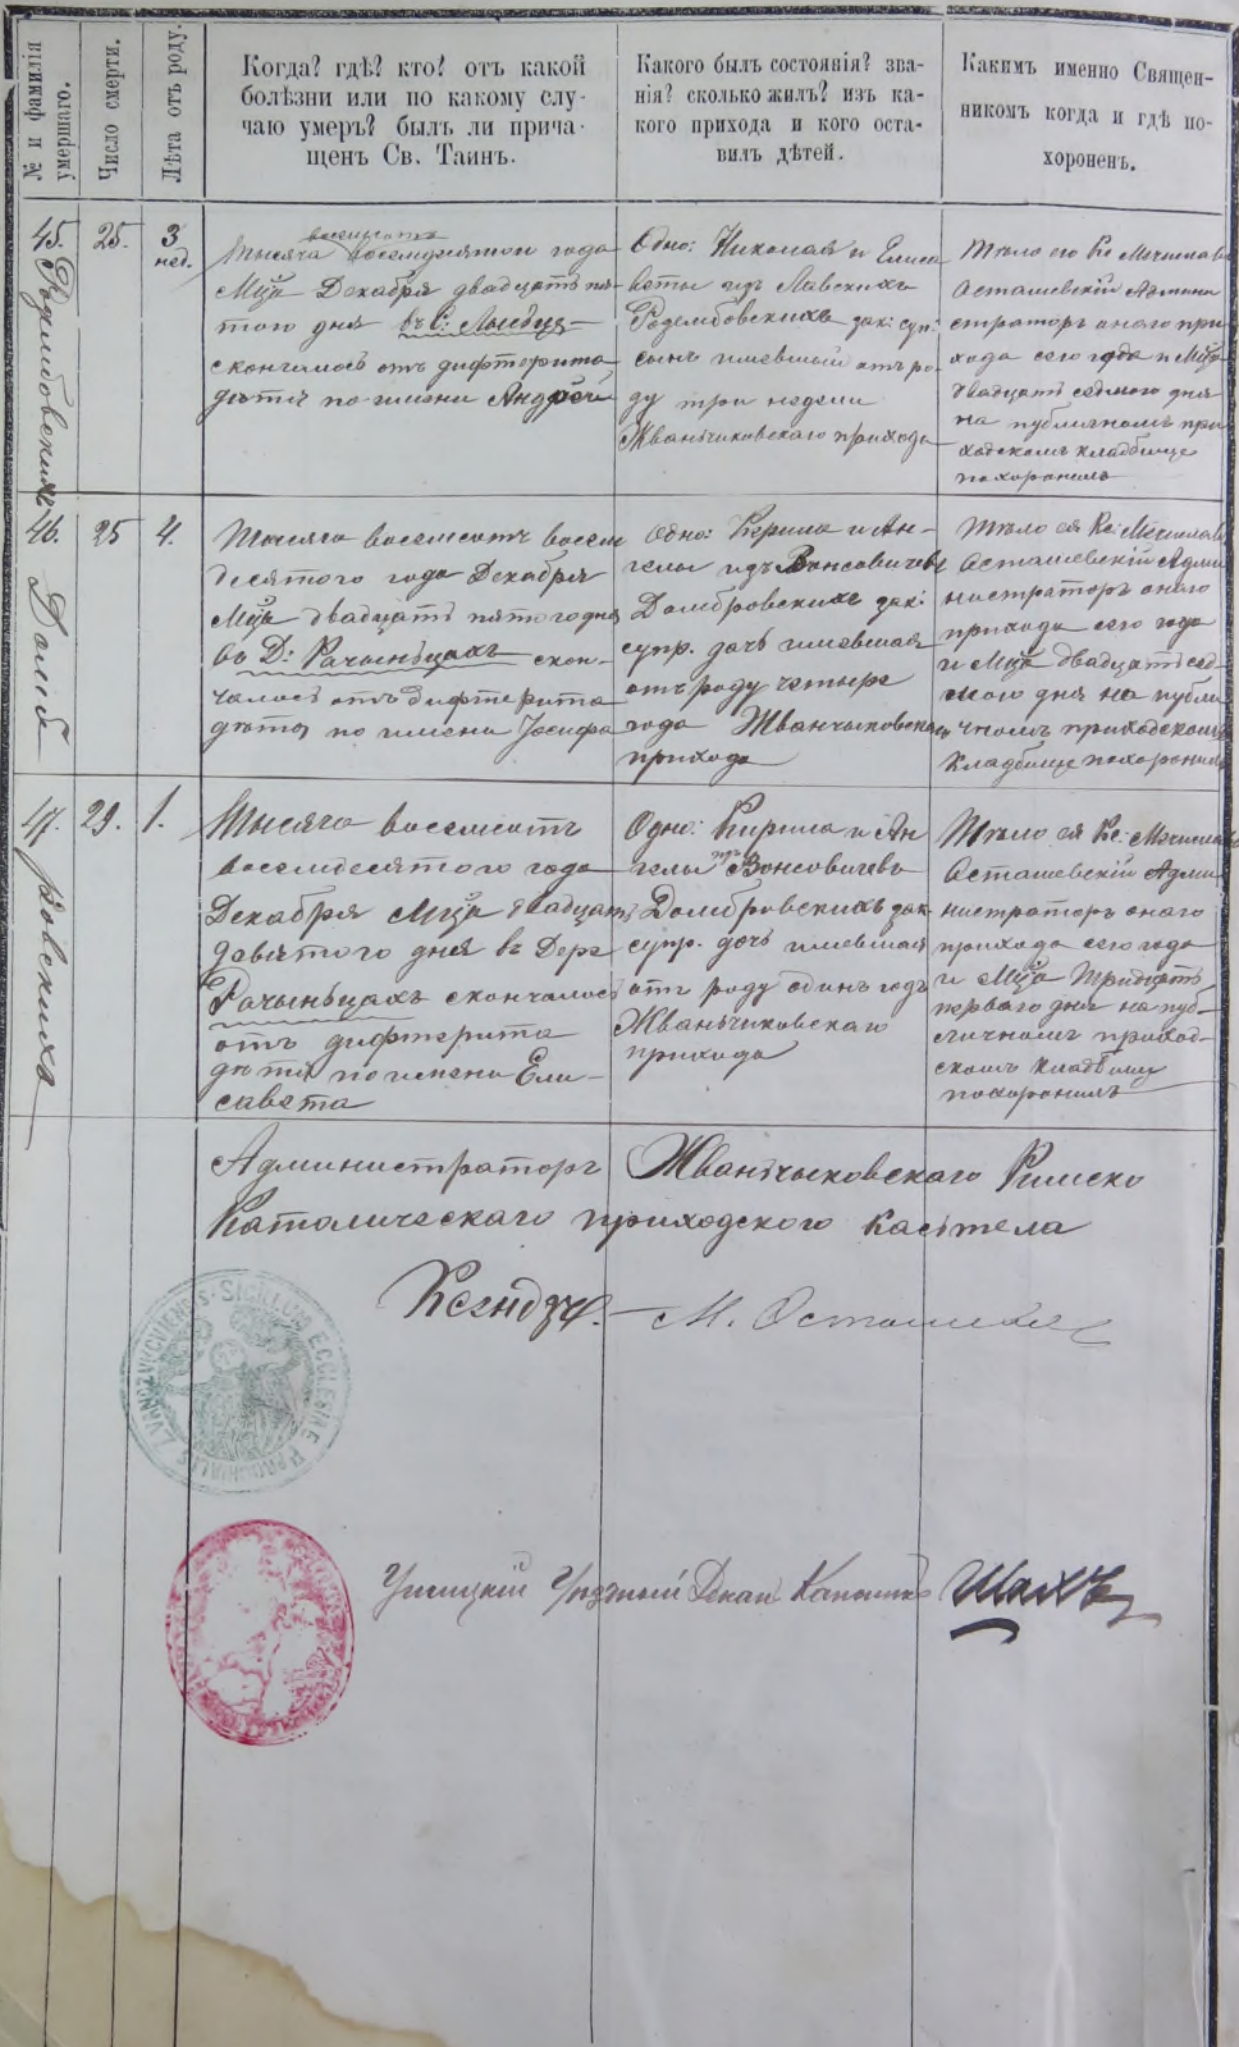 № и фамилія умершаго.
Число смерти.
Лѣта отъ роду.
Когда? гдѣ? кто? отъ какой
болѣзни или по какому слу-
чаю умеръ? былъ ли прича-
щенъ Св. Таинъ.
Какого былъ состоянія? зва-
нія? сколько жилъ? изъ ка-
кого прихода и кого оста-
вилъ дѣтей.
Какимъ именно Священ-
никомъ когда и гдѣ по-
хороненъ.
45.
25.
3
нед.
восемьсотъ
Тысяча восмидесятого года
Мца Декабря двадцать пя-
того дня въ С:
скончалось отъ дифтерита
дитя по имени Андрей
Одно: Николая и Елиса
веты изъ Лавскихъ
зак: суп:
сынъ имевшій отъ ро-
ду три недели
Жванчиковскаго прихода
Тѣло его Кс Мечиславъ
Осташевскій Админи
страторъ онаго при
хода сего года и Мца
двадцать седмого дня
на публичномъ при
ходскомъ кладбище
похоронилъ
46.
25
4.
Домб
Тысяча восемсотъ восем
десятого года Декабря
Мца двадцать пятого дня
въ Д: Рачынцахъ скон-
чалось отъ дифтерита
дѣтя по имени Іосифа
Одно: Кирила и Ан-
гелы изъ Вонсовичевъ
Домбровскихъ зак:
супр. дочь имевшая
отъ роду четыре
года Жванчыковскаго
прихода
Тѣло ея Кс: Мечиславъ
Осташевскій Адми
нистраторъ онаго
прихода сего года
и Мца двадцать сед-
мого дня на публи
чномъ приходскомъ
кладбище похоронилъ
47.
29.
1.
ровскихъ
Тысяча восемсотъ
восемдесятого года
Декабря Мца двадцать
девятого дня въ Дере
Рачынцахъ скончалось
отъ дифтерита
дѣтя по имени Ели-
савета
Одно: Кирила и Ан
гелы изъ Вонсовичевъ
Домбровскихъ зак.
супр. дочь имевшая
отъ роду одинъ годъ
Жванчиковскаго
прихода
Тѣло ея Кс: Мечиславъ
Осташевскій Адми
нистраторъ онаго
прихода сего года
и Мца Тридцать
перваго дня на пуб-
личномъ приход-
скомъ кладбище
похоронилъ
Администраторъ Жванчыковскаго Римско
Католическаго приходского костела
Ксендзъ. М. Осташевскій
SIGILLUM ECCLESIAE PAROCHIALIS
Ушицкій Уѣздный Декан Каноникъ